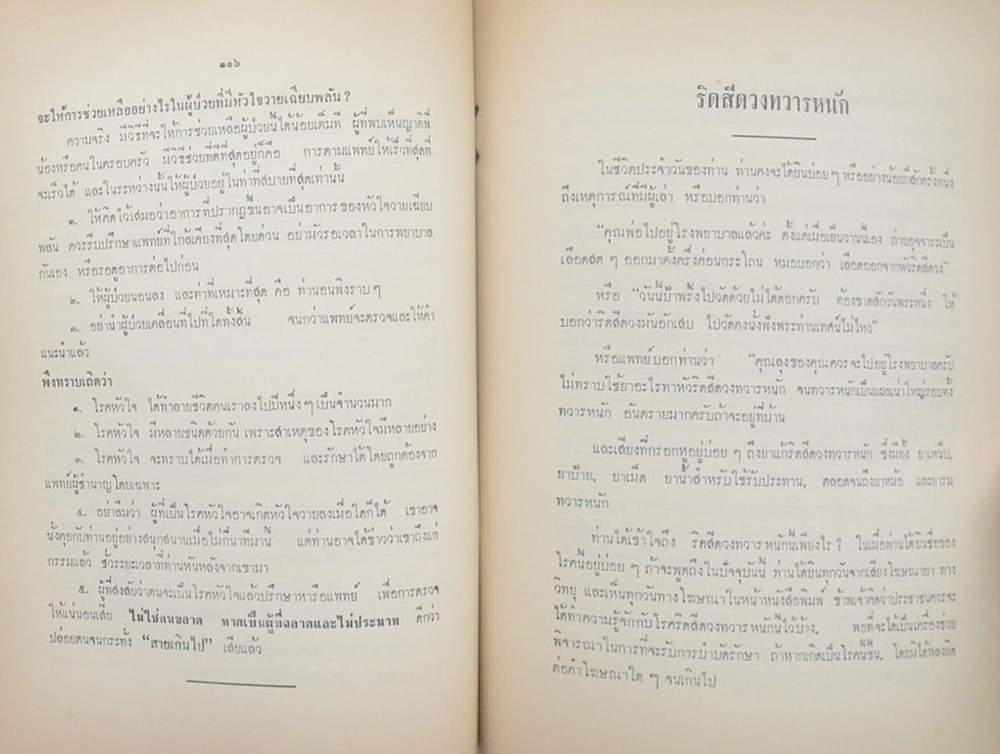 ๑๑๖
จะให้การช่วยเหลืออย่างไรในผู้ป่วยที่มีหัวใจวายเฉียบพลัน ?
ความจริง มีวิธีที่จะให้การช่วยเหลือผู้ป่วยนี้ได้น้อยเต็มที ผู้ที่พบเห็นญาติพี่
น้องหรือคนในครอบครัว มีวิธีช่วยที่ดีที่สุดอยู่ก็คือ การตามแพทย์ให้เร็วที่สุดที่
จะเร็วได้ และในระหว่างนั้นให้ผู้ป่วยอยู่ในท่าที่สบายที่สุดเท่านั้น
๑. ให้คิดไว้เสมอว่าอาการที่ปรากฏขึ้นอาจเป็นอาการของหัวใจวายเฉียบ
พลัน ควรรีบปรึกษาแพทย์ที่ใกล้เคียงที่สุดโดยด่วน อย่ามัวรอเวลาในการพยาบาล
กันเอง หรือรอดูอาการต่อไปก่อน
๒. ให้ผู้ป่วยนอนลง และท่าที่เหมาะที่สุด คือ ท่านอนพิงราบ ๆ
๓. อย่านำผู้ป่วยเคลื่อนที่ไปที่ใดทั้งสิ้น จนกว่าแพทย์จะตรวจและให้คำ
แนะนำแล้ว
พึงทราบเถิดว่า
๑. โรคหัวใจ ได้ทำลายชีวิตคนเราลงไปปีหนึ่ง ๆ เป็นจำนวนมาก
๒. โรคหัวใจ มีหลายชนิดด้วยกัน เพราะสาเหตุของโรคหัวใจมีหลายอย่าง
๓. โรคหัวใจ จะทราบได้เมื่อทำการตรวจ และรักษาได้โดยถูกต้องจาก
แพทย์ผู้ชำนาญโดยเฉพาะ
๔. อย่าลืมว่า ผู้ที่เป็นโรคหัวใจอาจเกิดหัวใจวายลงเมื่อใดก็ได้ เขาอาจ
นั่งคุยกับท่านอยู่อย่างสนุกสนานเมื่อไม่กี่นาทีมานี้ แต่ท่านอาจได้ข่าวว่าเขาถึงแก่
กรรมแล้ว ชั่วระยะเวลาที่ท่านหันหลังจากเขามา
๕. ผู้ที่สงสัยว่าตนจะเป็นโรคหัวใจแล้วปรึกษาหารือแพทย์ เพื่อการตรวจ
ให้แน่นอนเสีย ไม่ใช่คนขลาด หากเป็นผู้ที่ฉลาดและไม่ประมาท ดีกว่า
ปล่อยตนจนกระทั่ง “สายเกินไป” เสียแล้ว
ริดสีดวงทวารหนัก
ในชีวิตประจำวันของท่าน ท่านคงจะได้ยินบ่อย ๆ หรืออย่างน้อยก็สักครั้งหนึ่ง
ถึงเหตุการณ์ที่มีผู้เล่า หรือบอกท่านว่า
“คุณพ่อไปอยู่โรงพยาบาลแล้วค่ะ ตั้งแต่เมื่อเย็นวานนี้เอง ถ่ายอุจจาระเป็น
เลือดสด ๆ ออกมาตั้งครึ่งค่อนกระโถน หมอบอกว่า เลือดออกจากหัวริดสีดวง”
หรือ “วันนี้ป้าพรั้งไปวัดด้วยไม่ได้ดอกครับ ต้องขาดสักวันพระหนึ่ง ให้
บอกว่าริดสีดวงมันอักเสบ ไปวัดคงนั่งฟังพระท่านเทศน์ไม่ไหว”
หรือแพทย์บอกท่านว่า “คุณลุงของคุณควรจะไปอยู่โรงพยาบาลครับ
ไม่ทราบใช้ยาอะไรทาหัวริดสีดวงทวารหนัก จนทวารหนักเป็นแผลเน่าใหญ่รอบทั้ง
ทวารหนัก อันตรายมากครับถ้าจะอยู่ที่บ้าน
และเสียงที่กรอกหูอยู่บ่อย ๆ ถึงยาแก้ริดสีดวงทวารหนัก ซึ่งมีทั้ง ยาเหน็บ,
ยาป้าย, ยาเม็ด ยาน้ำสำหรับใช้รับประทาน, ตลอดจนถึงยาหม้อ และยารม
ทวารหนัก
ท่านได้เข้าใจถึง ริดสีดวงทวารหนักนี้เพียงไร ? ในเมื่อท่านได้ยินชื่อของ
โรคนี้อยู่บ่อย ๆ ถ้าจะพูดถึงในปัจจุบันนี้ ท่านได้ยินทุกวันจากเสียงโฆษณายา ทาง
วิทยุ และเห็นทุกวันทางโฆษณาในหน้าหนังสือพิมพ์ ข้าพเจ้าคิดว่าประชาชนควรจะ
ได้ทำความรู้จักกับโรคริดสีดวงทวารหนักนี้ไว้บ้าง, พอที่จะได้เป็นเครื่องช่วย
พิจารณาในการที่จะรับการบำบัดรักษา ถ้าหากเกิดเป็นโรคนี้ขึ้น, โดยมิได้หลงผิด
ต่อคำโฆษณาใด ๆ จนเกินไป